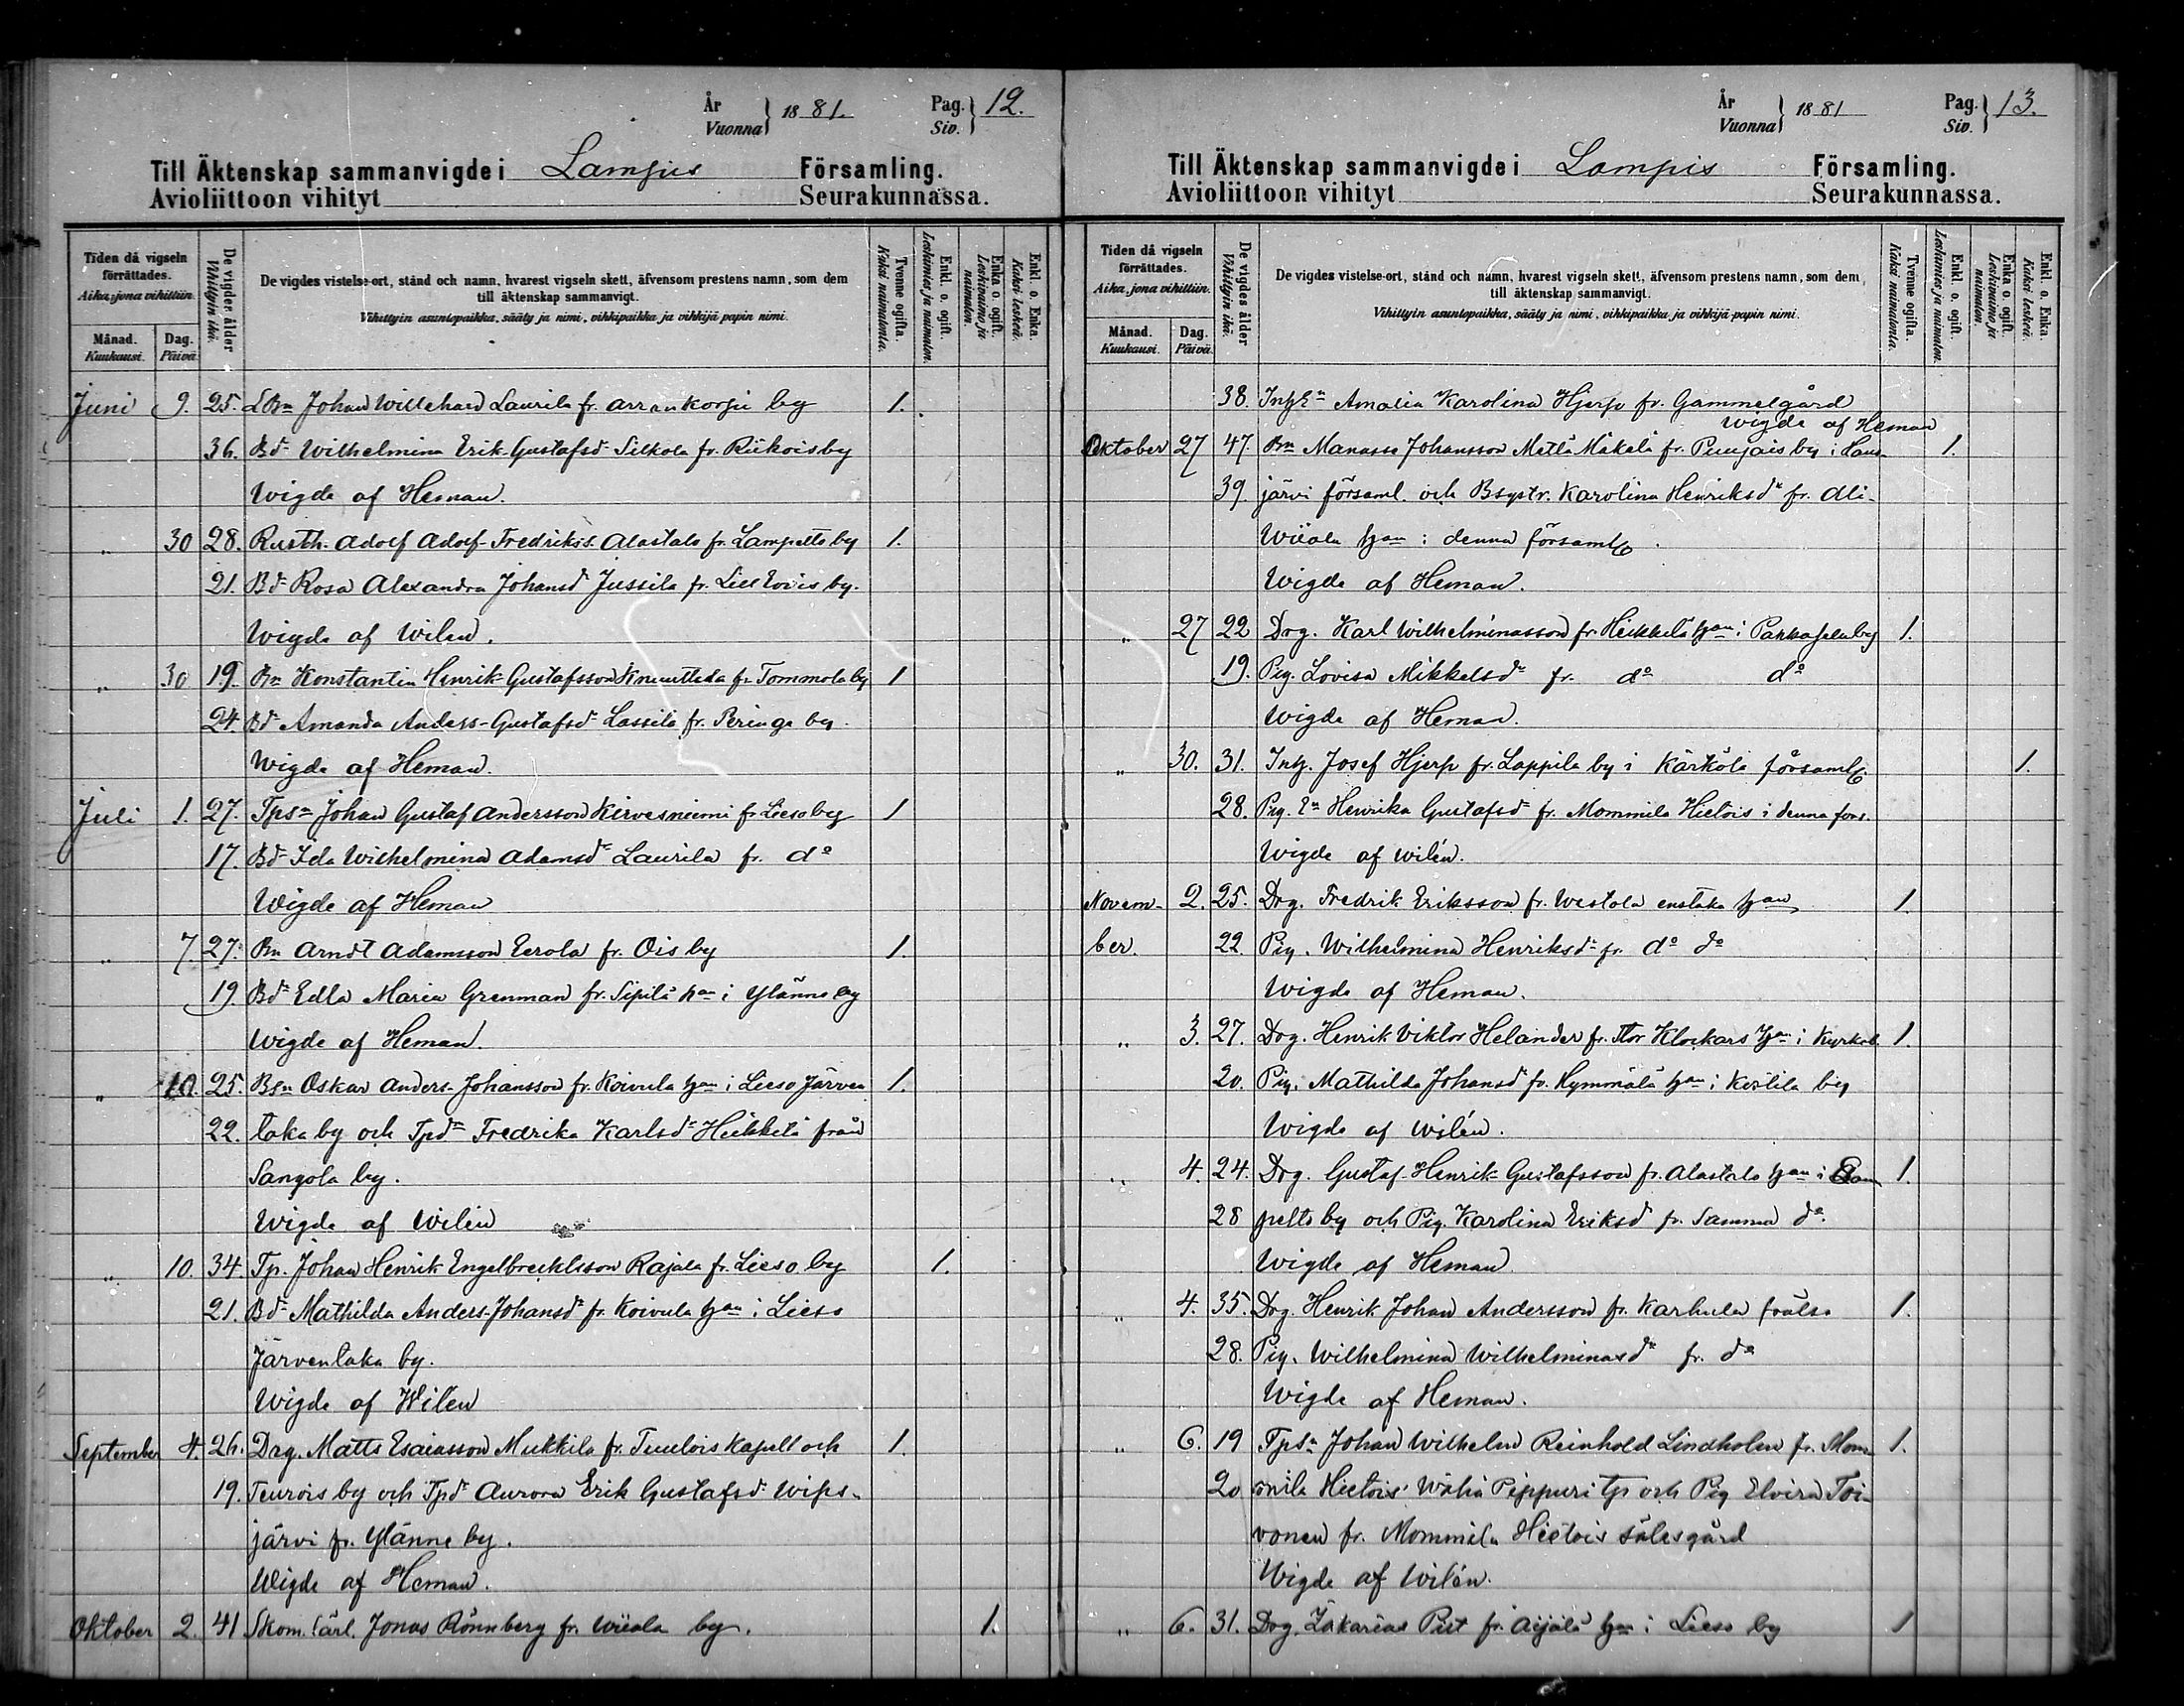 År
Vuonna
1881.
Pag.
Siv.
12.
Till Äktenskap sammanvigde i Lampis Församling.
Avioliittoon vihityt Seurakunnassa.
Tiden då vigseln förrättades.
Aika, jona vihittiin.
Månad.
Kuukausi.
Dag.
Päivä.
De vigdes ålder
Vihittyin ikä.
De vigdes vistelse-ort, stånd och namn, hvarest vigseln skett, äfvensom prestens namn, som dem
till äktenskap sammanvigt.
Vihittyin asuntopaikka, sääty ja nimi, vihkipaikka ja vihkijä papin nimi.
Tvenne ogifta.
Kaksi naimatonta.
Enkl. o. ogift.
Leskimies ja naimaton.
Enka o. ogift.
Leskivaimo ja naimaton.
Enkl. o. Enka.
Kaksi leskeä.
Juni 9. 25. LBn Johan Willehard Laurila fr. Arrankorpi by 1.
36. Bdr Wilhelmina Erik-Gustafsdr Silkola fr. Riikois by
Wigde af Heman.
„ 30 28. Rusth. Adolf Adolf-Fredrikss. Alastalo fr. Lampelto by 1.
21. Bdr Rosa Alexandra Johansdr Jussila fr. Lill Evois by.
Wigde af Wilen.
„ 30 19. Bn Konstantin Henrik-Gustafsson Knuuttila fr. Tommola by 1
24. Bdr Amanda Anders-Gustafsdr Lassila fr. Peringe by.
Wigde af Heman.
Juli 1. 27. Tpsn Johan Gustaf Andersson Kirvesniemi fr. Lieso by 1
17. Bdr Ida Wilhelmina Adamsdr Laurila fr. do
Wigde af Heman
„ 7 27. Bn Arndt Adamsson Eerola fr. Ois by 1.
19 Bdr Edla Maria Grenman fr. Sipilä hn i Ylänne by
Wigde af Heman.
„ 10. 25. Bsn Oskar Anders-Johansson fr. Koivula hman i Lieso Järven 1.
22. taka by och Tpdr Fredrika Karlsdr Heikkilä från
Sangola by.
Wigde af Wilén
„ 10. 34. Tp. Johan Henrik Engelbrecktsson Rajala fr. Lieso by 1.
21. Bdr Mathilda Anders-Johansdr fr. Koivula hman i Lieso
Järventaka by.
Wigde af Wilen
September 4. 26. Drg. Matts Esaiasson Mukkila fr. Tuulois Kapell och 1.
19. Teurois by och Tpdr Aurora Erik Gustafsdr Wips-
järvi fr. Ylänne by.
Wigde af Heman.
Oktober 2. 41 Skom. lärl. Jonas Rönnberg fr. Wiiala by. 1.
År
Vuonna
1881
Pag.
Siv.
13.
Till Äktenskap sammanvigde i Lampis Församling.
Avioliittoon vihityt Seurakunnassa.
Tiden då vigseln förrättades.
Aika, jona vihittiin.
Månad.
Kuukausi.
Dag.
Päivä.
De vigdes ålder
Vihittyin ikä.
De vigdes vistelse-ort, stånd och namn, hvarest vigseln skett, äfvensom prestens namn, som dem
till äktenskap sammanvigt.
Vihittyin asuntopaikka, sääty ja nimi, vihkipaikka ja vihkijä-papin nimi.
Tvenne ogifta.
Kaksi naimatonta.
Enkl. o. ogift.
Leskimies ja naimaton.
Enka o. ogift.
Leskivaimo ja naimaton.
Enkl. o. Enka.
Kaksi leskeä.
38. Inh.En Amalia Karolina Hjerp fr. Gammelgård
Wigde af Heman
Oktober 27 47. Bn Manasse Johansson Mattä Mäkelä fr. Puujais by i Laus- 1.
39. järvi församl. och Bsystr. Karolina Henriksdr fr. Ali-
Wiiala hman i denna församlg.
Wigde af Heman.
„ 27 22 Drg. Karl Wilhelminasson fr. Heikkilä hman i Parkasen by 1.
19. Pig. Lovisa Mikkelsdr fr. do do
Wigde af Heman.
„ 30. 31. Inh. Josef Hjerp fr. Lappila by i Kärkölä församlg. 1.
28. Pig. En Henrika Gustafsdr fr. Mommila Hietois i denna förs.
Wigde af Wilén.
Novem- 2. 25. Drg. Fredrik Eriksson fr. Westola enstaka hman 1.
ber. 22. Pig. Wilhelmina Henriksdr fr. do do
Wigde af Heman.
„ 3. 27. Drg. Henrik Viktor Helander fr. Stor Klockars hman i Kyrkob. 1.
20. Pig. Mathilda Johansdr fr. Hymmälä hman i Kostila by
Wigde af Wilén.
„ 4. 24. Drg. Gustaf-Henrik Gustafsson fr. Alastalo hman i Lam 1.
28 pelto by och Pig. Karolina Eriksdr fr. Samma do.
Wigde af Heman
„ 4. 35. Drg. Henrik Johan Andersson fr. Karhula frälse 1.
28. Pig. Wilhelmina Wilhelminasdr fr. do
Wigde af Heman.
„ 6. 19 Tpsn Johan Wilhelm Reinhold Lindholm fr. Mom- 1.
20 mila Hietois Wähä Pippuri tp och Pig Elvira Toi-
vonen fr. Mommila Hietois sätesgård
Wigde af Wilén.
„ 6. 31. Drg. Zakarias Pist fr. Äijälä hman i Lieso by 1